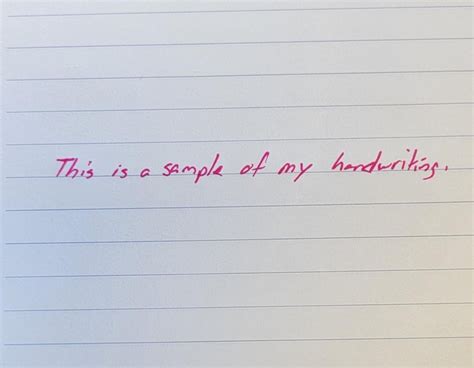 This is a sample of my handwriting.